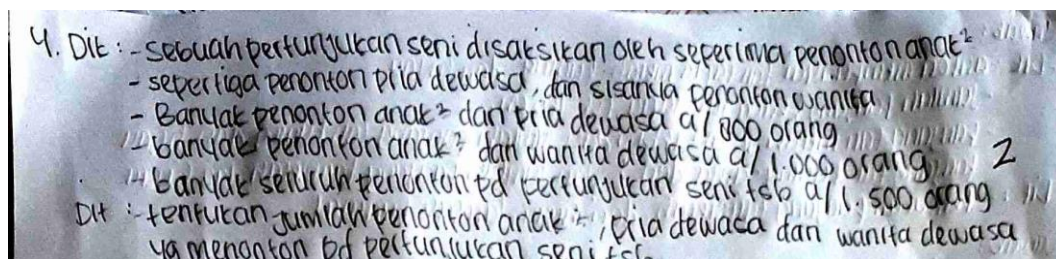 4. Dik : - Sebuah pertunjukan seni disaksikan oleh seperlima penonton anak²
- sepertiga penonton pria dewasa, dan sisanya penonton wanita
- Banyak penonton anak² dan pria dewasa a/ 800 orang
- banyak penonton anak² dan wanita dewasa a/ 1.000 orang
2
- banyak seluruh penonton pd pertunjukan seni tsb a/ 1.500 orang
Dit : - tentukan jumlah penonton anak², pria dewasa dan wanita dewasa
yg menonton pd pertunjukan seni tsb